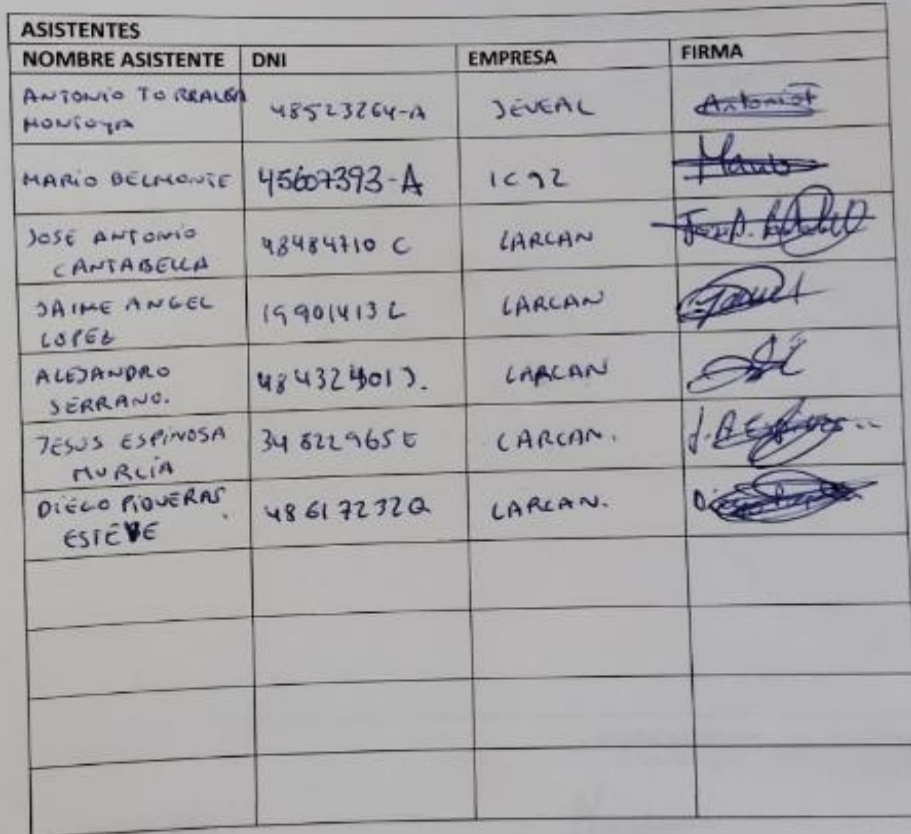 ASISTENTES
NOMBRE ASISTENTE DNI EMPRESA FIRMA
ANTONIO TORRALBA
MONTOYA 48523264-A JEVEAL Antonio
MARIO BELMONTE 45607393-A IC92 Mario
JOSE ANTONIO
CANTABELLA 48484710 C LARCAN
JAIME ANGEL
LOPEZ 19901413 L LARCAN
ALEJANDRO
SERRANO. LARCAN
JESUS ESPINOSA
MURCIA 34822965 E LARCAN.
DIEGO PIQUERAS
ESTEVE 48617232Q LARCAN.